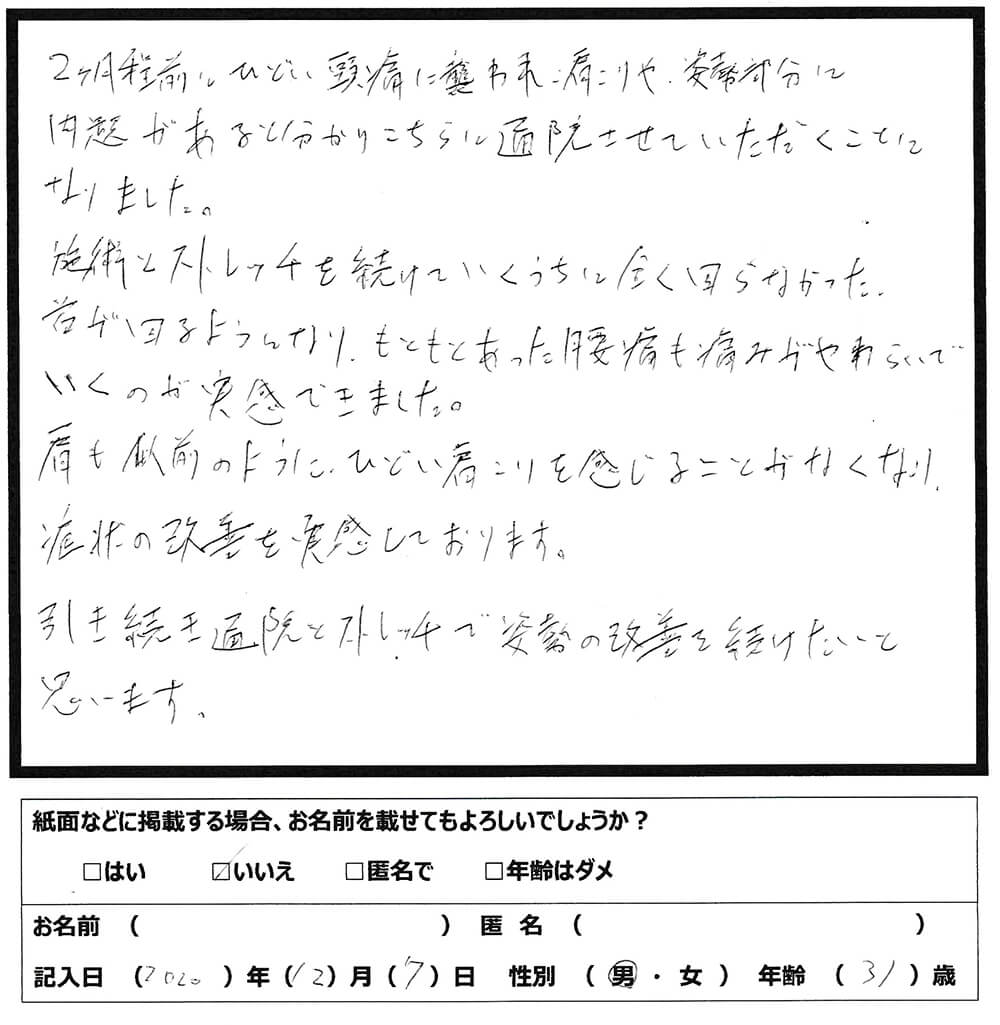 2ヶ月程前にひどい頭痛に襲われ、肩こりや、姿勢部分に
問題があると分かりこちらに通院させていただくことに
なりました。
施術とストレッチを続けていくうちに全く回らなかった、
首が回るようになり、もともとあった腰痛も痛みがやわらいで
いくのが実感できました。
肩も以前のように、ひどい肩こりを感じることがなくなり、
症状の改善を実感しております。
引き続き通院とストレッチで姿勢の改善を続けたいと
思います。
紙面などに掲載する場合、お名前を載せてもよろしいでしょうか？
□はい ☑いいえ □匿名で □年齢はダメ
お名前 （ ） 匿名 （ ）
記入日 （2020）年（12）月（7）日 性別 （男・女） 年齢 （31）歳